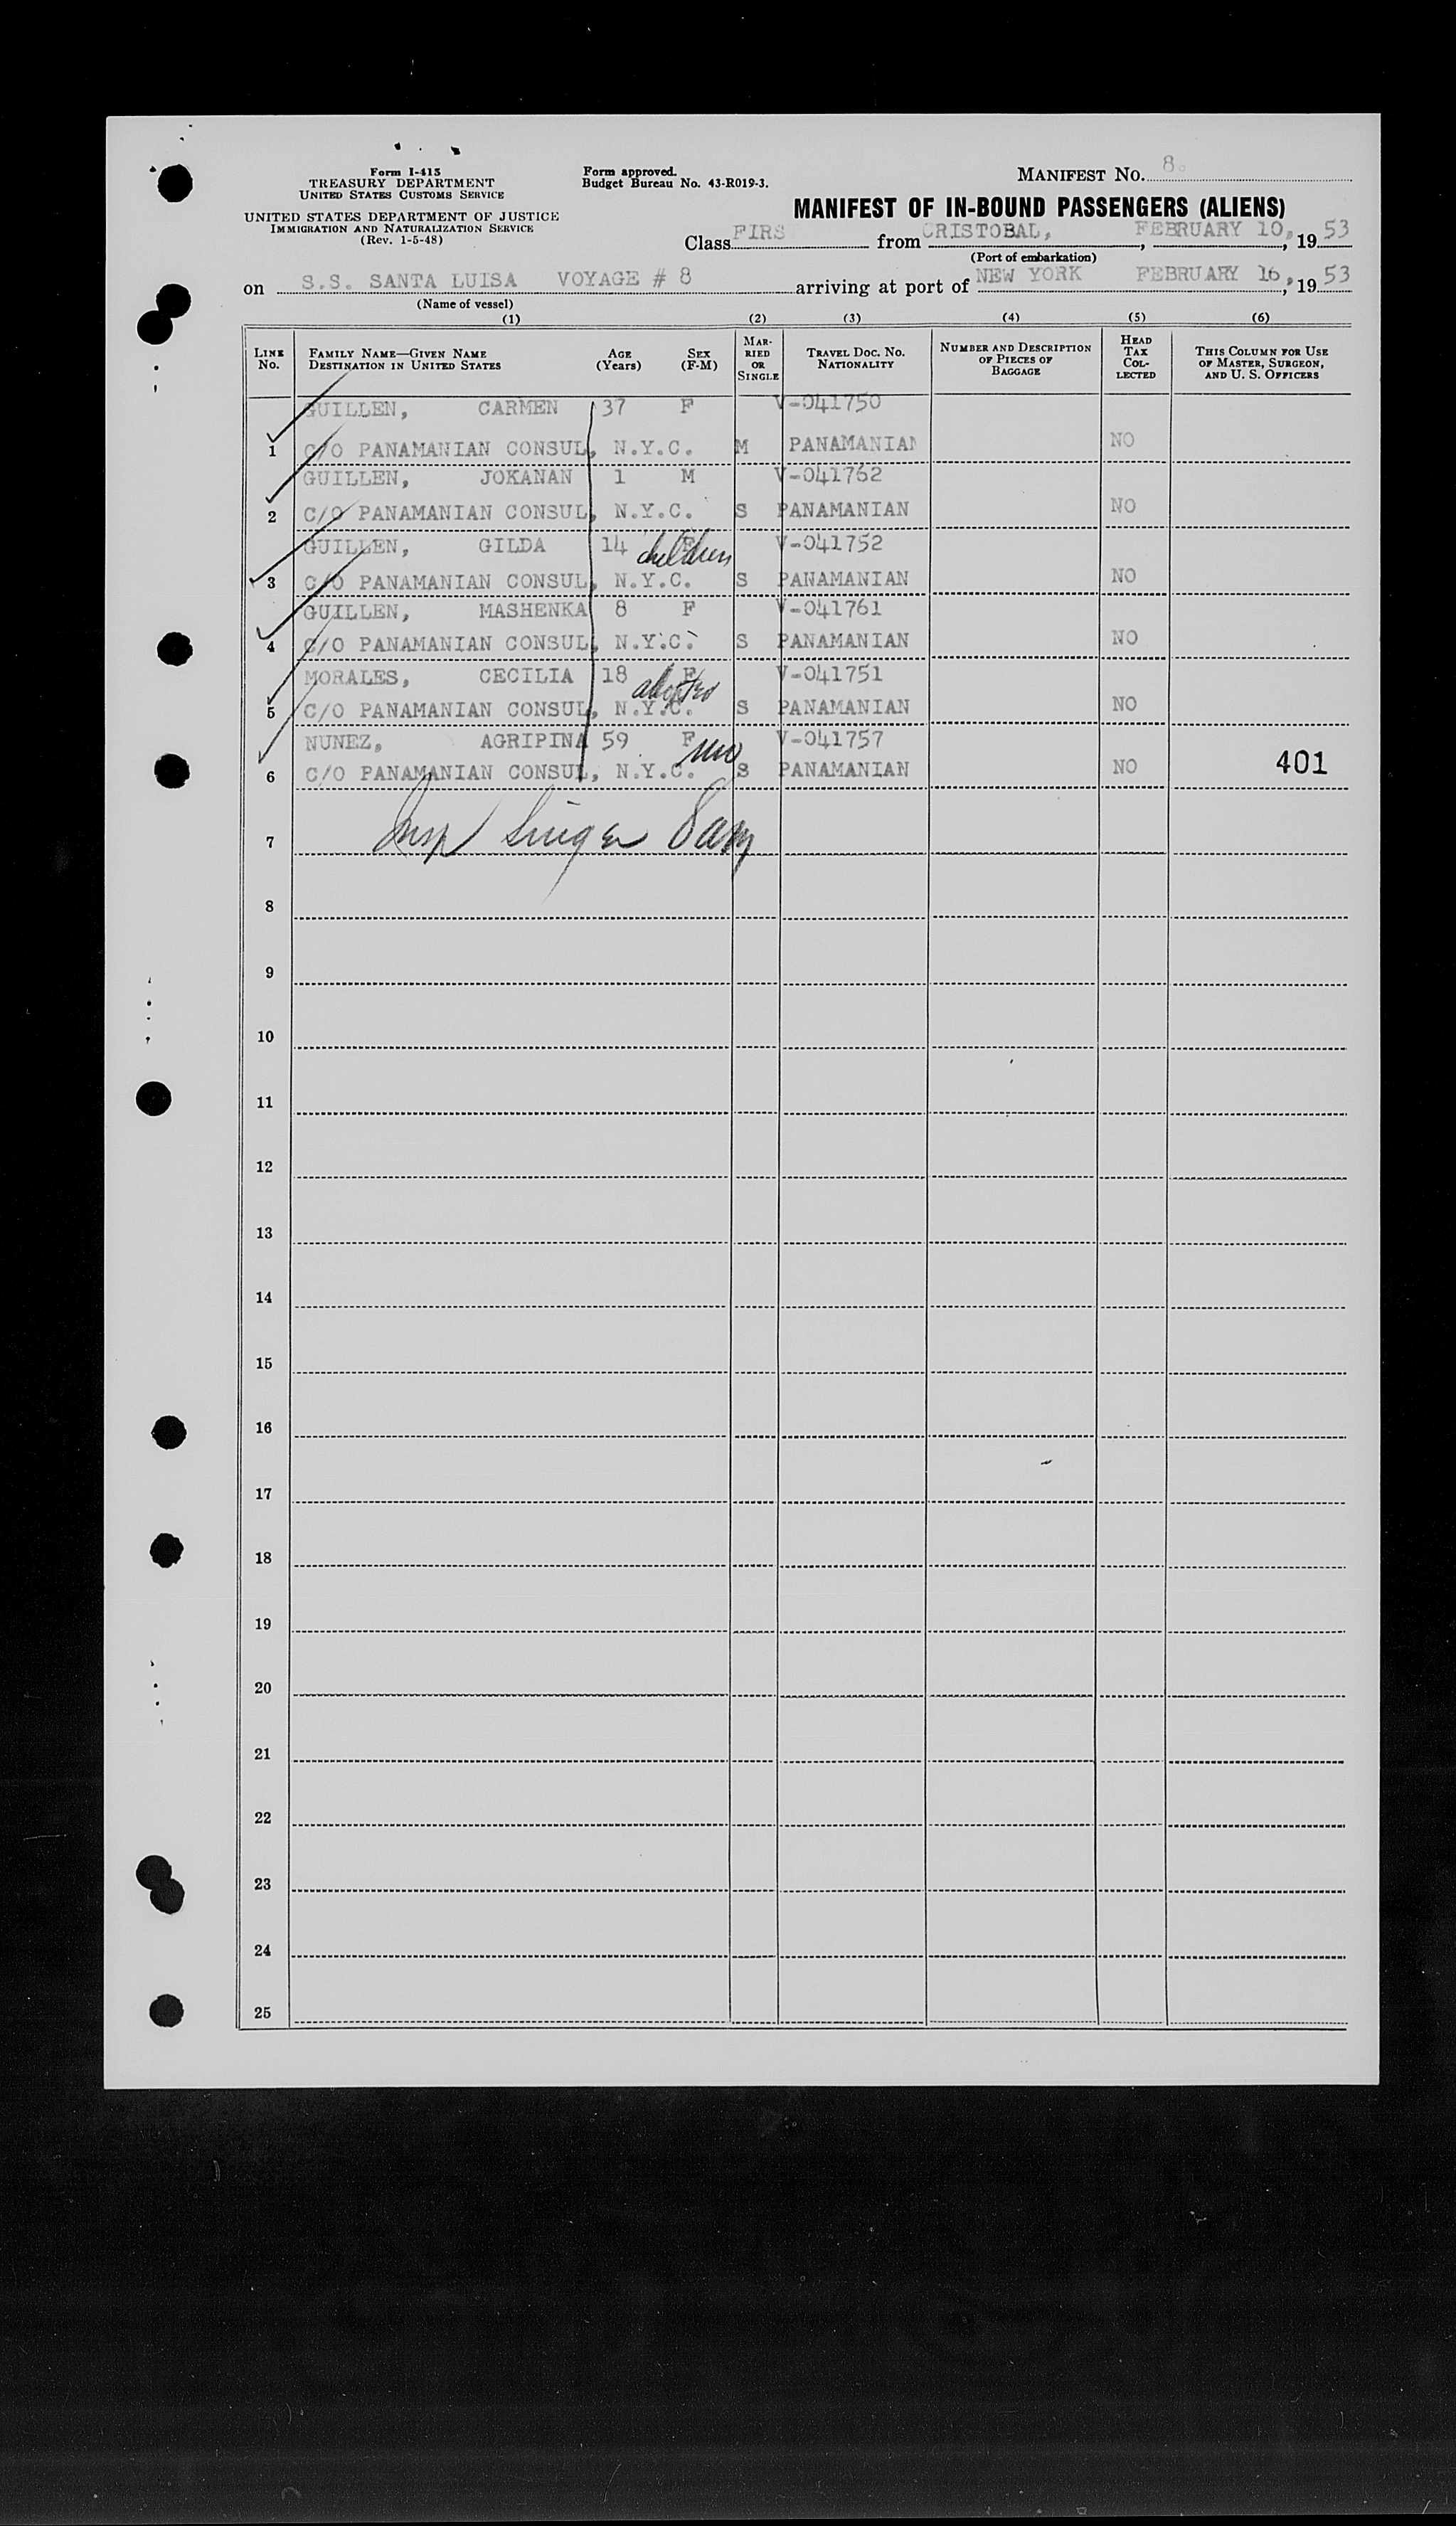 Form I-415
TREASURY DEPARTMENT
UNITED STATES CUSTOMS SERVICE
UNITED STATES DEPARTMENT OF JUSTICE
IMMIGRATION AND NATURALIZATION SERVICE
(Rev. 1-5-48)
Form approved.
Budget Bureau No. 43-R019-3.
MANIFEST NO. 8.
MANIFEST OF IN-BOUND PASSENGERS (ALIENS)
Class FIRS from CRISTOBAL, , FEBRUARY 10, , 19 53
(Port of embarkation)
on S.S. SANTA LUISA VOYAGE # 8 arriving at port of NEW YORK FEBRUARY 16, , 19 53
(Name of vessel)
(1) (2) (3) (4) (5) (6)
LINE No.
FAMILY NAME—GIVEN NAME
DESTINATION IN UNITED STATES
AGE (Years)
SEX (F-M)
MARRIED OR SINGLE
TRAVEL DOC. NO.
NATIONALITY
NUMBER AND DESCRIPTION OF PIECES OF BAGGAGE
HEAD TAX COLLECTED
THIS COLUMN FOR USE OF MASTER, SURGEON, AND U. S. OFFICERS
GUILLEN, CARMEN 37 F V-041750
1 C/O PANAMANIAN CONSUL, N.Y.C. M PANAMANIAN NO
GUILLEN, JOKANAN 1 M V-041762
2 C/O PANAMANIAN CONSUL, N.Y.C. S PANAMANIAN NO
GUILLEN, GILDA 14 F children V-041752
3 C/O PANAMANIAN CONSUL, N.Y.C. S PANAMANIAN NO
GUILLEN, MASHENKA 8 F V-041761
4 C/O PANAMANIAN CONSUL, N.Y.C. S PANAMANIAN NO
MORALES, CECILIA 18 F V-041751
5 C/O PANAMANIAN CONSUL, N.Y.C. S PANAMANIAN NO
NUNEZ, AGRIPINA 59 F V-041757
6 C/O PANAMANIAN CONSUL, N.Y.C. S PANAMANIAN NO 401
7 Insp Singer 8am
8
9
10
11
12
13
14
15
16
17
18
19
20
21
22
23
24
25